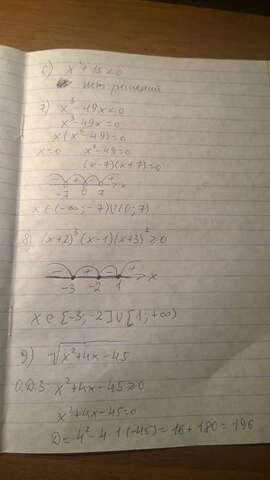 6) x² + 15 < 0
нет решений
7) x³ - 49x < 0
x³ - 49x = 0
x(x² - 49) = 0
x = 0 x² - 49 = 0
(x - 7)(x + 7) = 0
- + - + -7 0 7 x
x ∈ (-∞; -7) ∪ (0; 7)
8) (x+2)³(x-1)(x+3)² ≥ 0
- + - + -3 -2 1 x
x ∈ [-3; -2] ∪ [1; +∞)
9) √x² + 4x - 45
О.Д.З: x² + 4x - 45 ≥ 0
x² + 4x - 45 = 0
D = 4² - 4·1·(-45) = 16 + 180 = 196